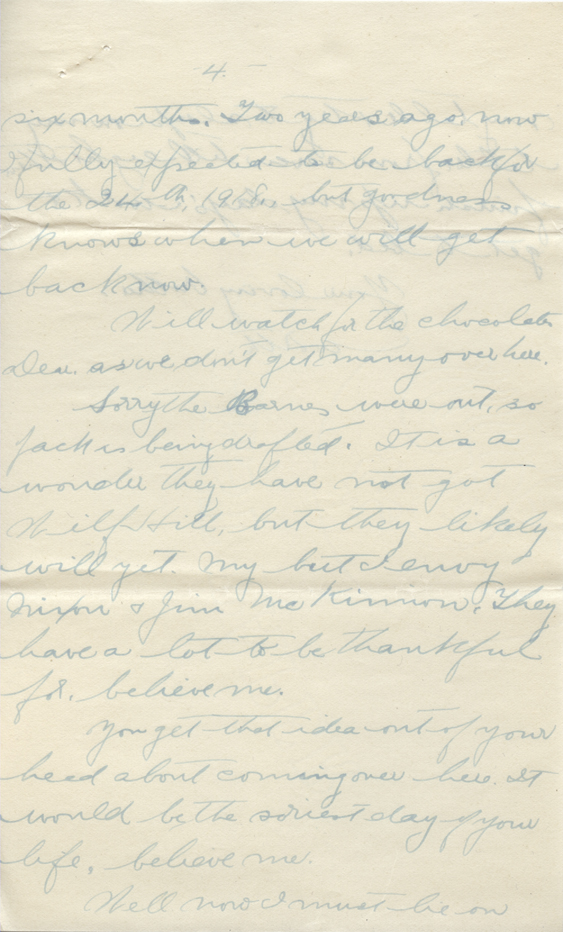 4.
six months. Two years ago now
I fully expected to be back for
the 24th, 1918, but goodness
knows when we will get
back now.
Will watch for the chocolates
Dear as we don't get many over here.
Sorry the Barnes were out, so
Jack is being drafted. It is a
wonder they have not got
Wilf Hill, but they likely
will yet. My but I envy
Nixon & Jim McKinnon. They
have a lot to be thankful
for, believe me.
You get that idea out of your
head about coming over here. It
would be the soriest day of your
life, believe me.
Well now I must be on